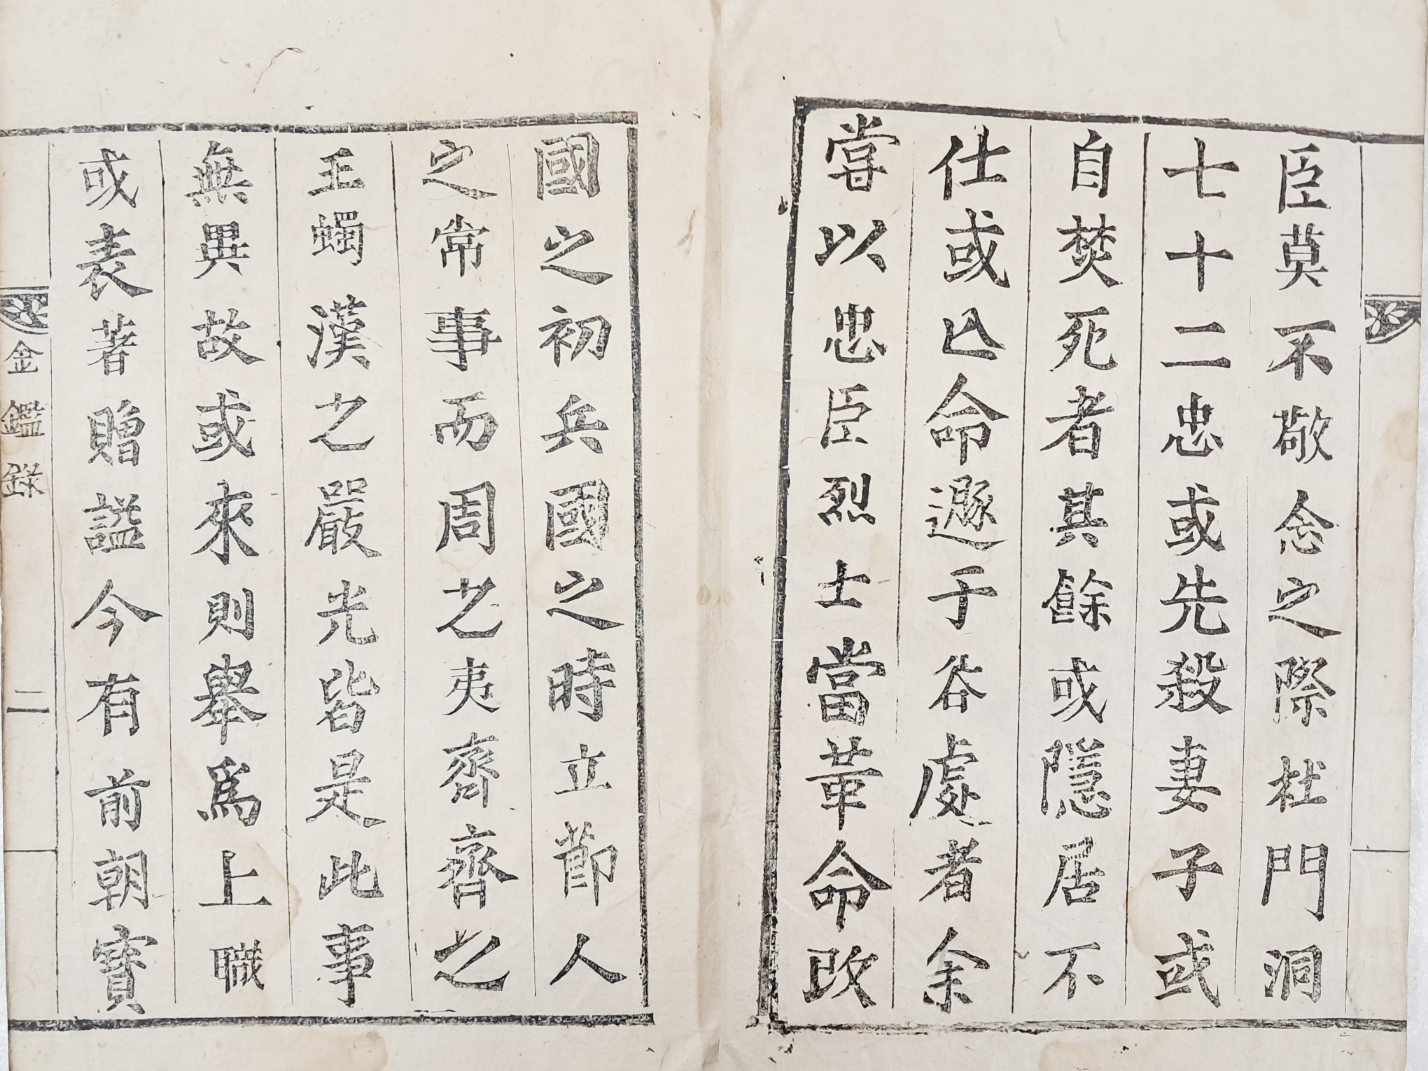 臣莫不敬念之際杜門洞
七十二忠或先殺妻子或
自焚死者其餘或隱居不
仕或亾命遯于谷處者余
嘗以忠臣烈士當革命改
國之初兵國之時立節人
之常事而周之夷齊齊之
王蠋漢之嚴光皆是此事
無異故或來則舉爲上職
或表著贈謚今有前朝寶
金鑑錄 二